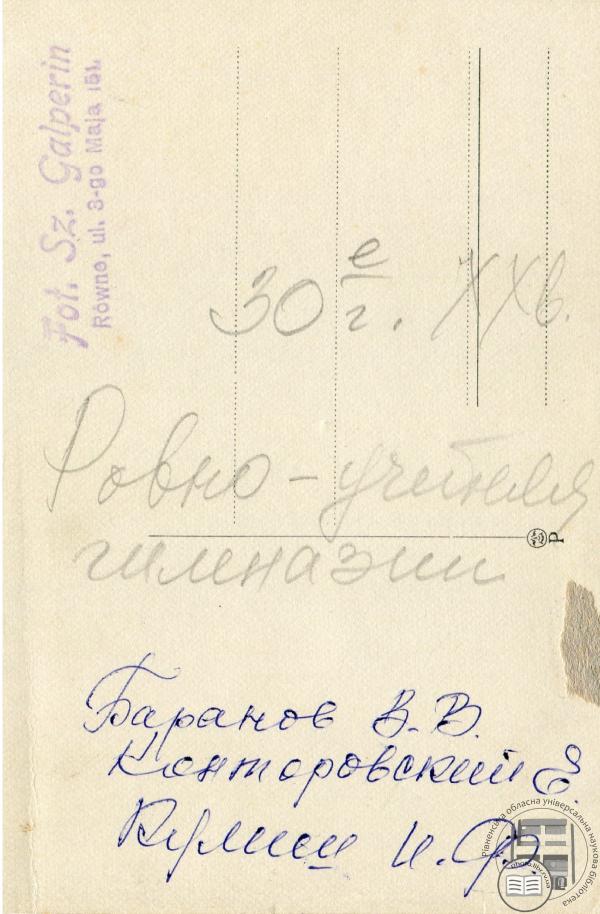 Fot. Sz. Galperin
Równe, ul. 3-go Maja 151.
30 е г. ХХв.
Ровно - учителя
гимназии
P
Баранов В.В.
Конторовский Е.
Кулиш И.Ф.
Рівненська обласна універсальна наукова бібліотека